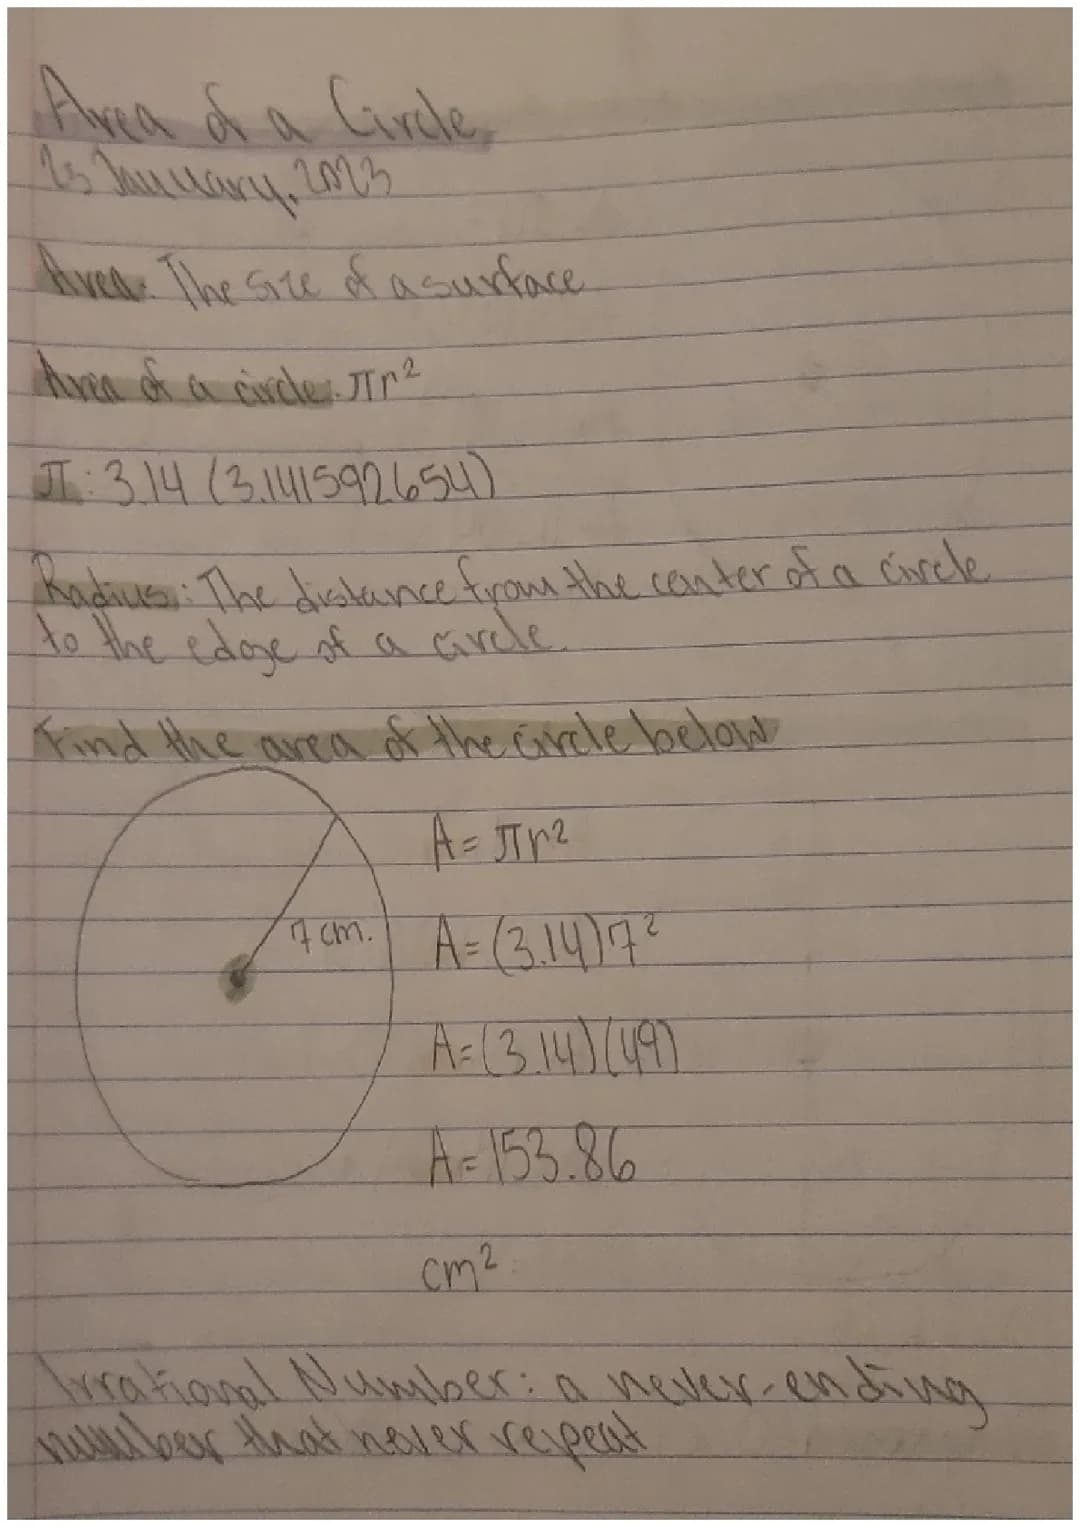 Area of a Circle
23 January, 2023
Area: The size of a surface
Area of a circle: πr²
π: 3.14 (3.141592654)
Radius: The distance from the center of a circle
to the edge of a circle.
Find the area of the circle below
A = πr²
7 cm.
A = (3.14)7²
A = (3.14)(49)
A = 153.86
cm²
Irrational Number: a never-ending
number that never repeat